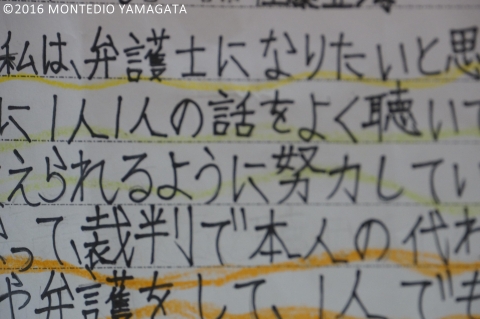 ©2016 MONTEDIO YAMAGATA
私は、弁護士になりたいと思
に1人1人の話をよく聴いて
えられるように努力してい
って、裁判で本人の代わ
や弁護をして、1人でも